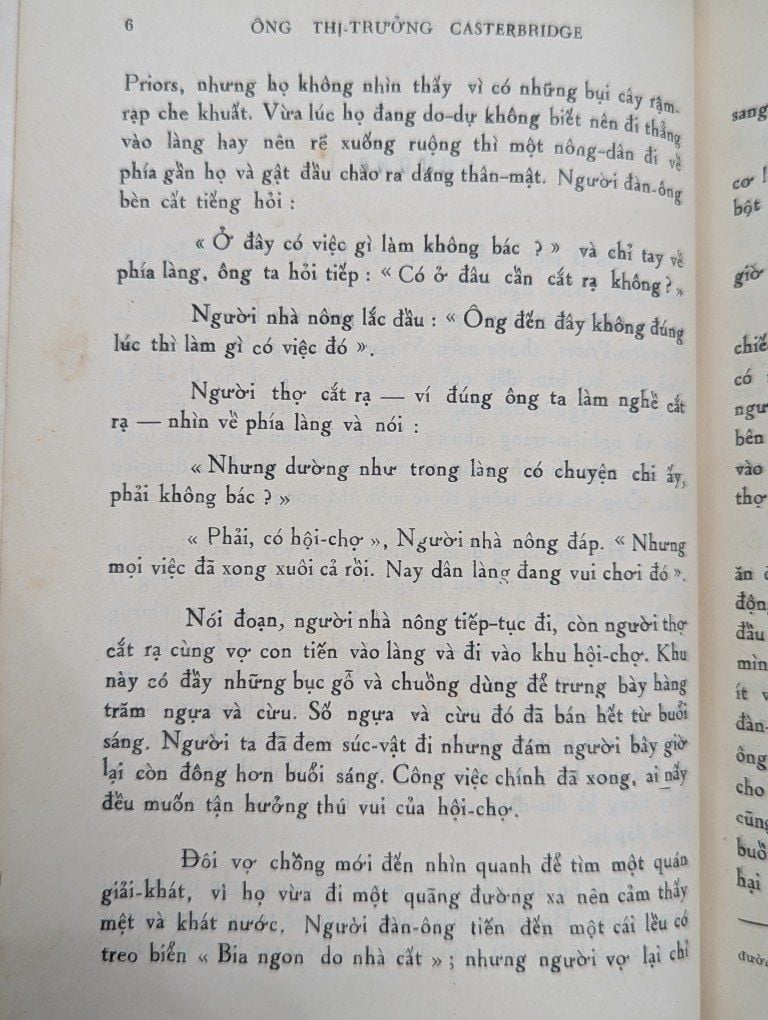 6 ÔNG THỊ-TRƯỞNG CASTERBRIDGE
Priors, nhưng họ không nhìn thấy vì có những bụi cây rậm-
rạp che khuất. Vừa lúc họ đang do-dự không biết nên đi thẳng
vào làng hay nên rẽ xuống ruộng thì một nông-dân đi về
phía gần họ và gật đầu chào ra dáng thân-mật. Người đàn-ông
bèn cất tiếng hỏi :
« Ở đây có việc gì làm không bác ? » và chỉ tay về
phía làng, ông ta hỏi tiếp : « Có ở đâu cần cắt rạ không? »
Người nhà nông lắc đầu : « Ông đến đây không đúng
lúc thì làm gì có việc đó ».
Người thợ cắt rạ — ví đúng ông ta làm nghề cắt
rạ — nhìn về phía làng và nói :
« Nhưng dường như trong làng có chuyện chi ấy,
phải không bác ? »
« Phải, có hội-chợ », Người nhà nông đáp. « Nhưng
mọi việc đã xong xuôi cả rồi. Nay dân làng đang vui chơi đó ».
Nói đoạn, người nhà nông tiếp-tục đi, còn người thợ
cắt rạ cùng vợ con tiến vào làng và đi vào khu hội-chợ. Khu
này có đầy những bục gỗ và chuồng dùng để trưng bày hàng
trăm ngựa và cừu. Số ngựa và cừu đó đã bán hết từ buổi
sáng. Người ta đã đem súc-vật đi nhưng đám người bây giờ
lại còn đông hơn buổi sáng. Công việc chính đã xong, ai nấy
đều muốn tận hưởng thú vui của hội-chợ.
Đôi vợ chồng mới đến nhìn quanh để tìm một quán
giải-khát, vì họ vừa đi một quãng đường xa nên cảm thấy
mệt và khát nước. Người đàn-ông tiến đến một cái lều có
treo biển « Bia ngon do nhà cất » ; nhưng người vợ lại chỉ
sang
cơ !
bột
giờ
chiế
có
ngư
bên
vào
thợ
ăn
độn
đầu
mìn
ít v
đàn-
ông
cho
cũng
buồ
hại
đườ